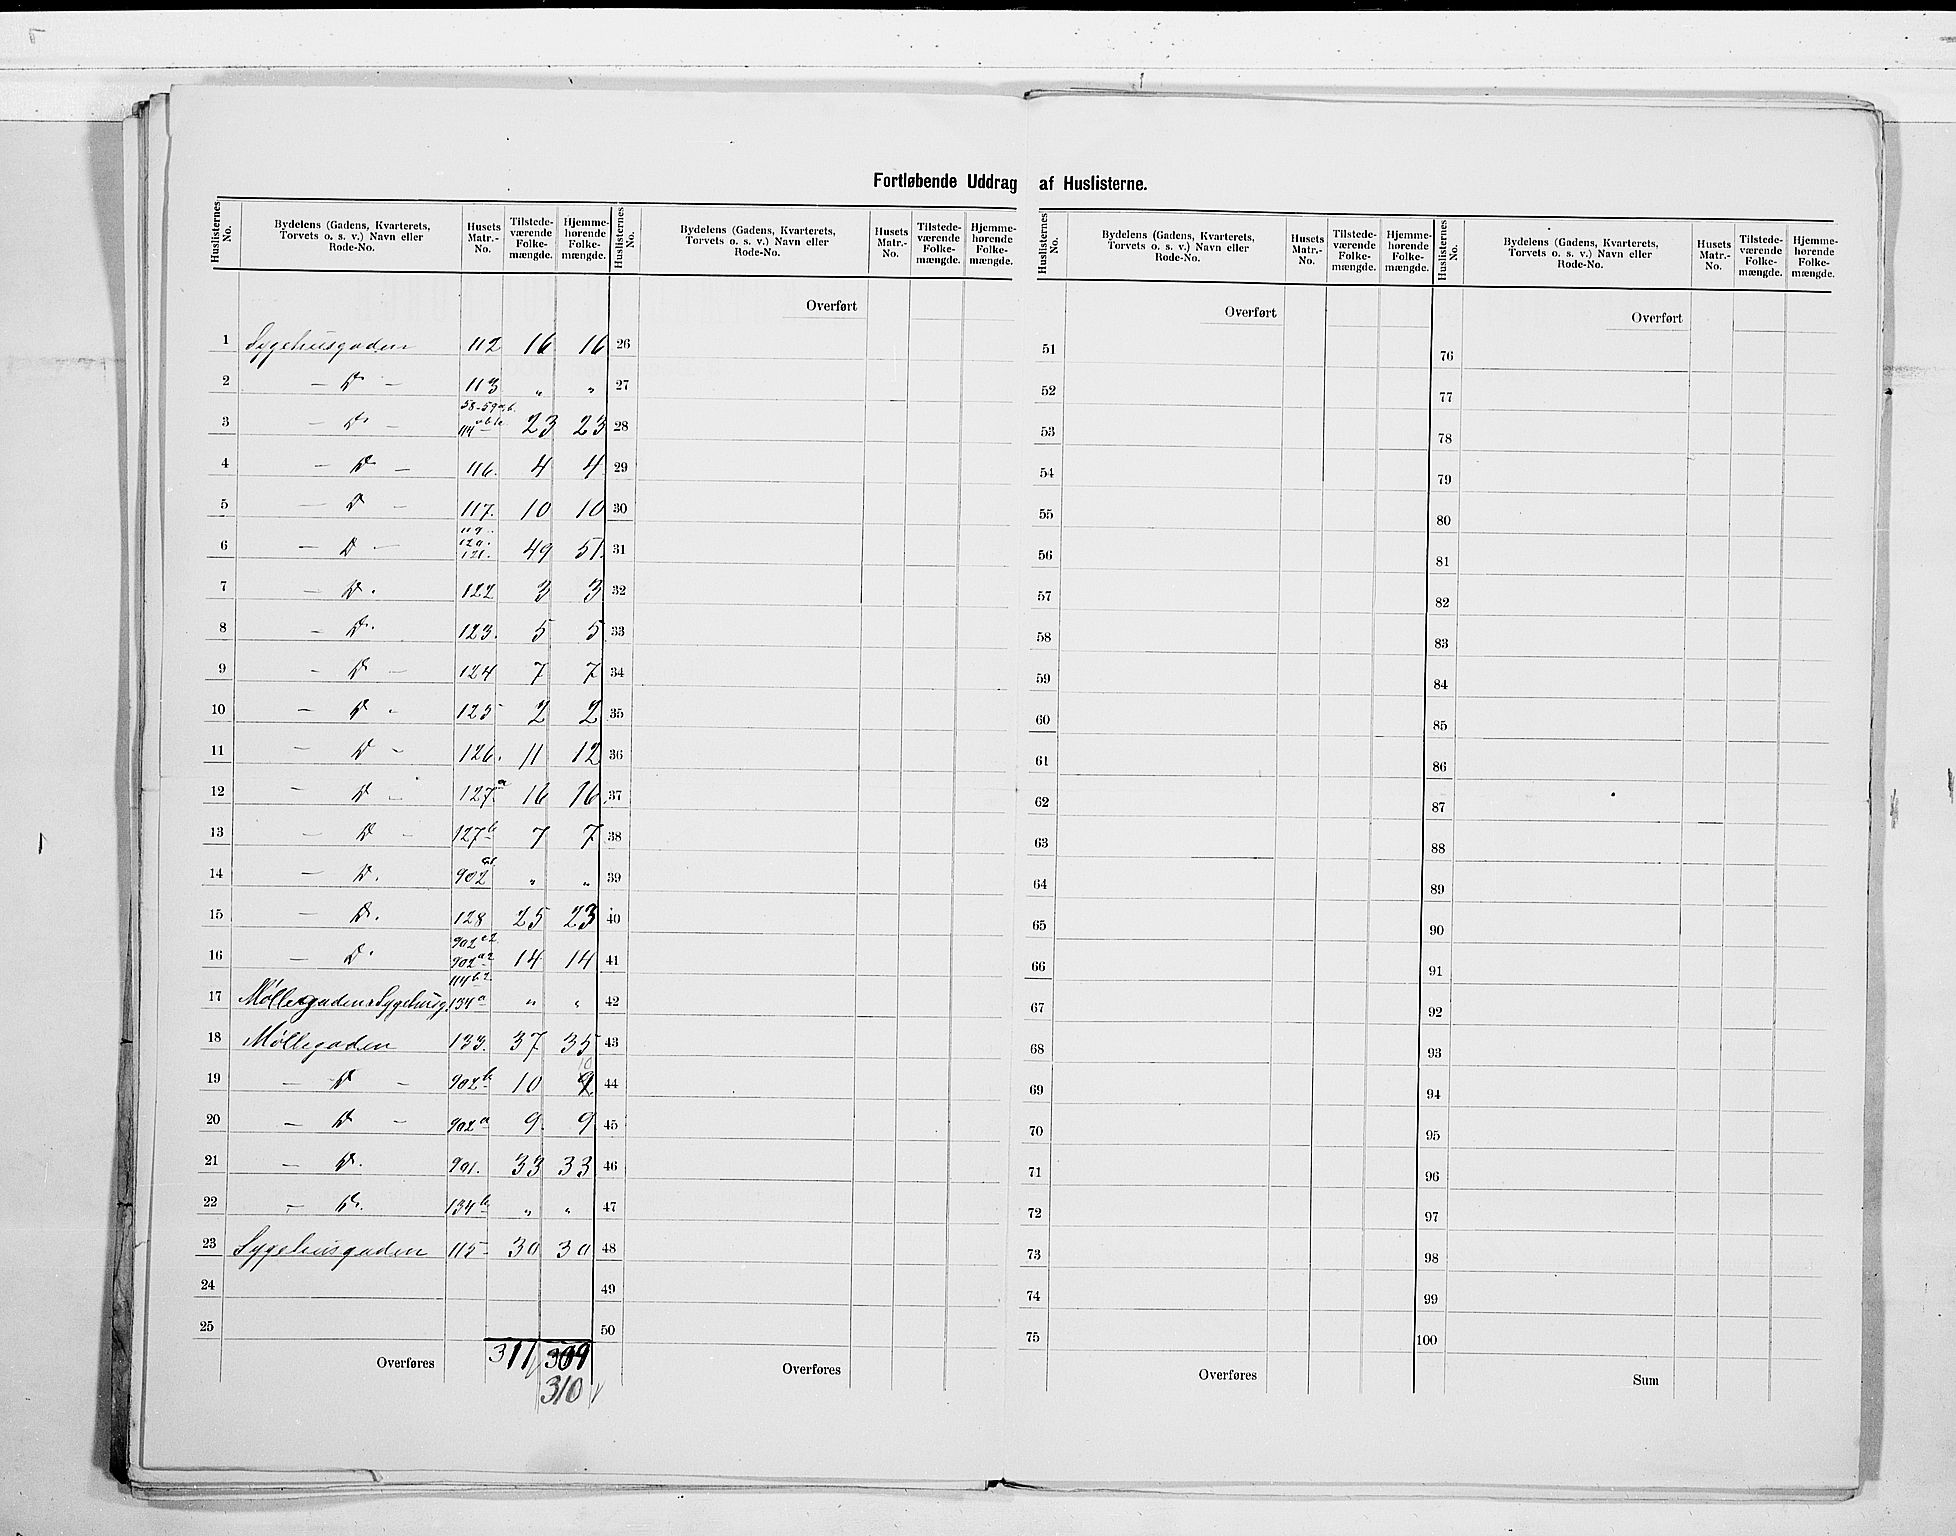 Fortløbende Uddrag af Huslisterne.
Huslisternes No. Bydelens (Gadens, Kvarterets, Torvets o. s. v.) Navn eller Rode-No. Husets Matr.-No. Tilstedeværende Folkemængde. Hjemmehørende Folkemængde.
Huslisternes No. Bydelens (Gadens, Kvarterets, Torvets o. s. v.) Navn eller Rode-No. Husets Matr.-No. Tilstedeværende Folkemængde. Hjemmehørende Folkemængde.
Huslisternes No. Bydelens (Gadens, Kvarterets, Torvets o. s. v.) Navn eller Rode-No. Husets Matr.-No. Tilstedeværende Folkemængde. Hjemmehørende Folkemængde.
Huslisternes No. Bydelens (Gadens, Kvarterets, Torvets o. s. v.) Navn eller Rode-No. Husets Matr.-No. Tilstedeværende Folkemængde. Hjemmehørende Folkemængde.
Overført Overført Overført
1 Sygehusgaden 112 16 16 26 51 76
2 — D — 113 „ „ 27 52 77
3 — D — 58-59 a,b. 114 abc 23 23 28 53 78
4 — D — 116. 4 4 29 54 79
5 — D — 117. 10 10 30 55 80
6 — D — 119. 120. 121. 49 51. 31 56 81
7 — D. 122 3 3 32 57 82
8 — D. 123. 5 5 33 58 83
9 — D — 124 7 7 34 59 84
10 — D - 125 2 2 35 60 85
11 — D - 126. 11 12 36 61 86
12 — D — 127 a 16 16 37 62 87
13 — D — 127 b 7 7 38 63 88
14 — D. 902 a1 „ „ 39 64 89
15 — D. 128 25 23 40 65 90
16 — D. 902 a2 14 14 41 66 91
17 Møllegaden & Sygehusg. 114 b2 134 a „ „ 42 67 92
18 Møllegaden 133. 37 35 43 68 93
19 — D — 902 b 10 9 10 44 69 94
20 — D — 902 a 9 9 45 70 95
21 — D. 901. 33 33 46 71 96
22 — D. 134 b „ „ 47 72 97
23 Sygehusgaden 115 30 30 48 73 98
24 49 74 99
25 50 75 100
Overføres 311 309 Overføres Overføres Sum
310